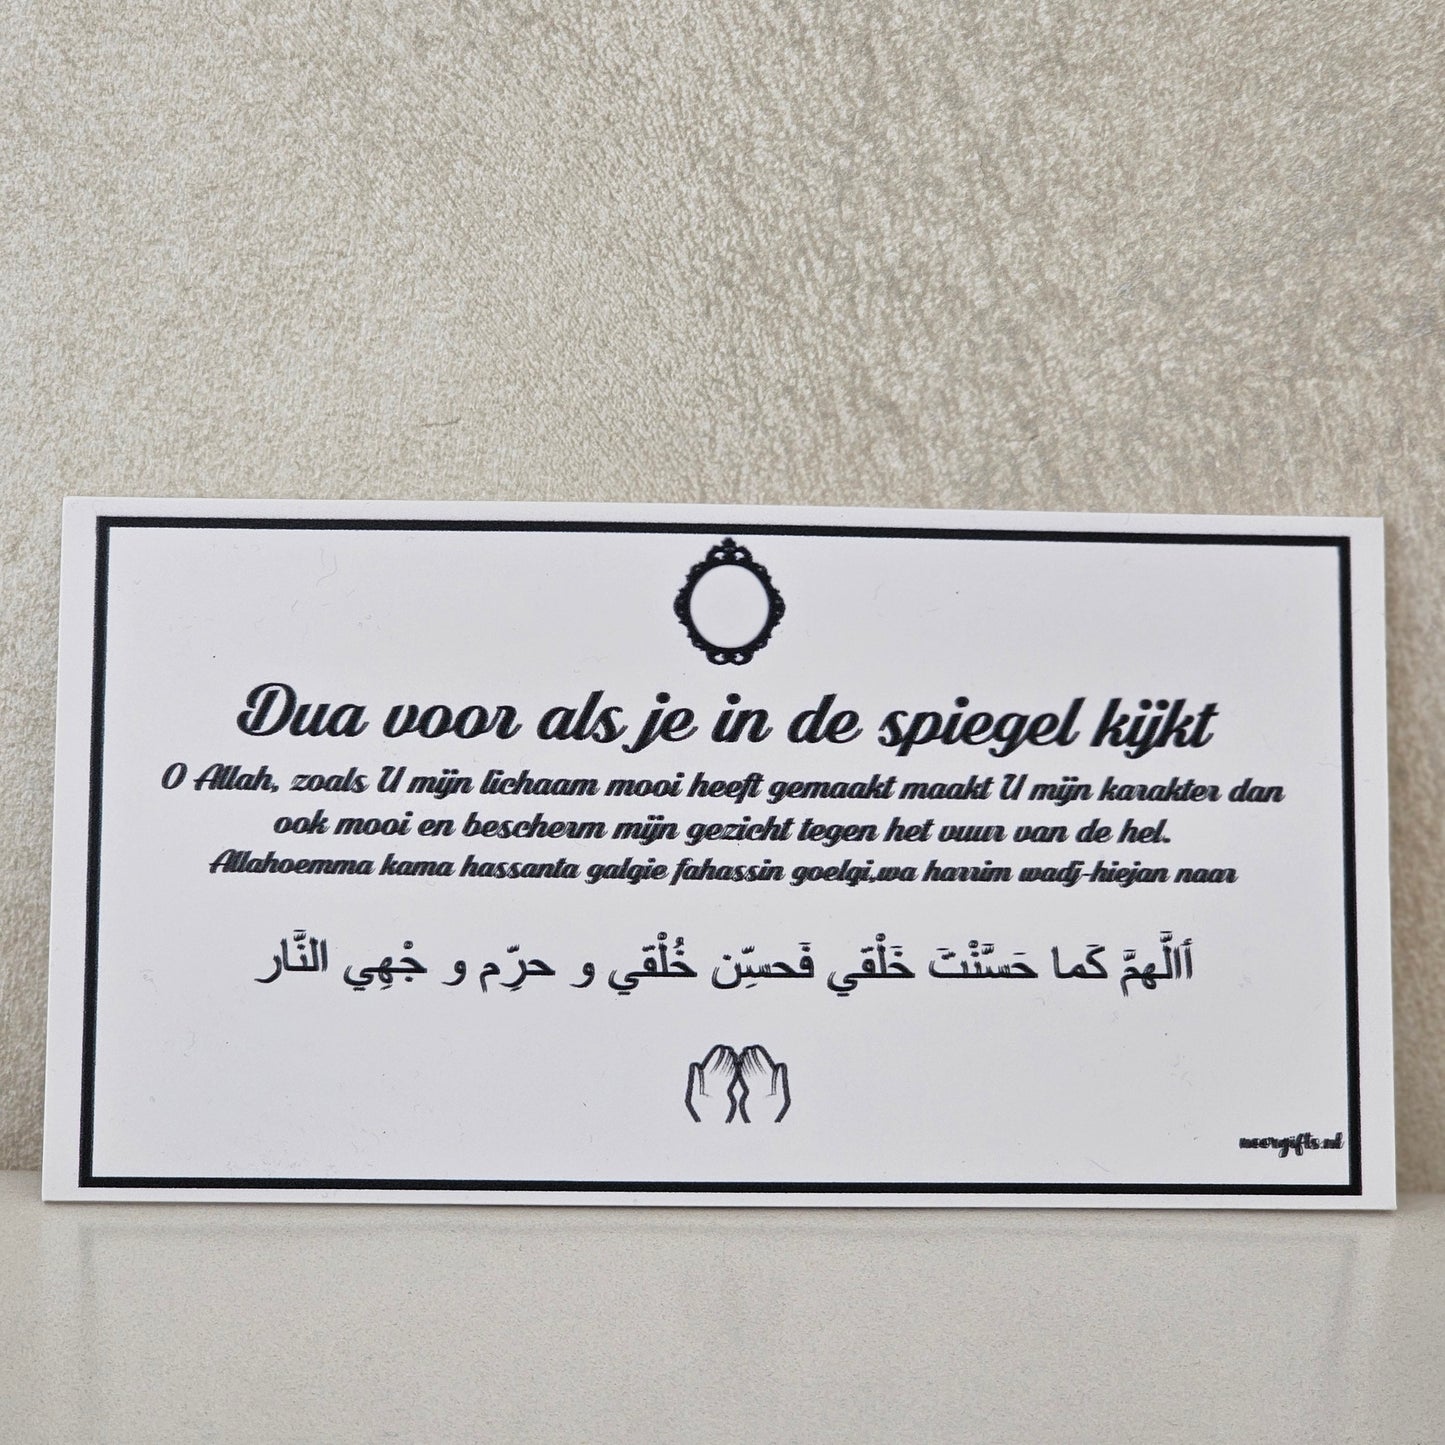 Dua voor als je in de spiegel kijkt
O Allah, zoals U mijn lichaam mooi heeft gemaakt maakt U mijn karakter dan
ook mooi en bescherm mijn gezicht tegen het vuur van de hel.
Allahoemma kama hassanta galgie fahassin goelqi,wa harrim wadj-hiejan naar
أللَّهمَّ كَما حَسَّنْتَ خَلْقي فَحسِّن خُلْقي و حرِّم و جْهِي النَّار
noorgifts.nl